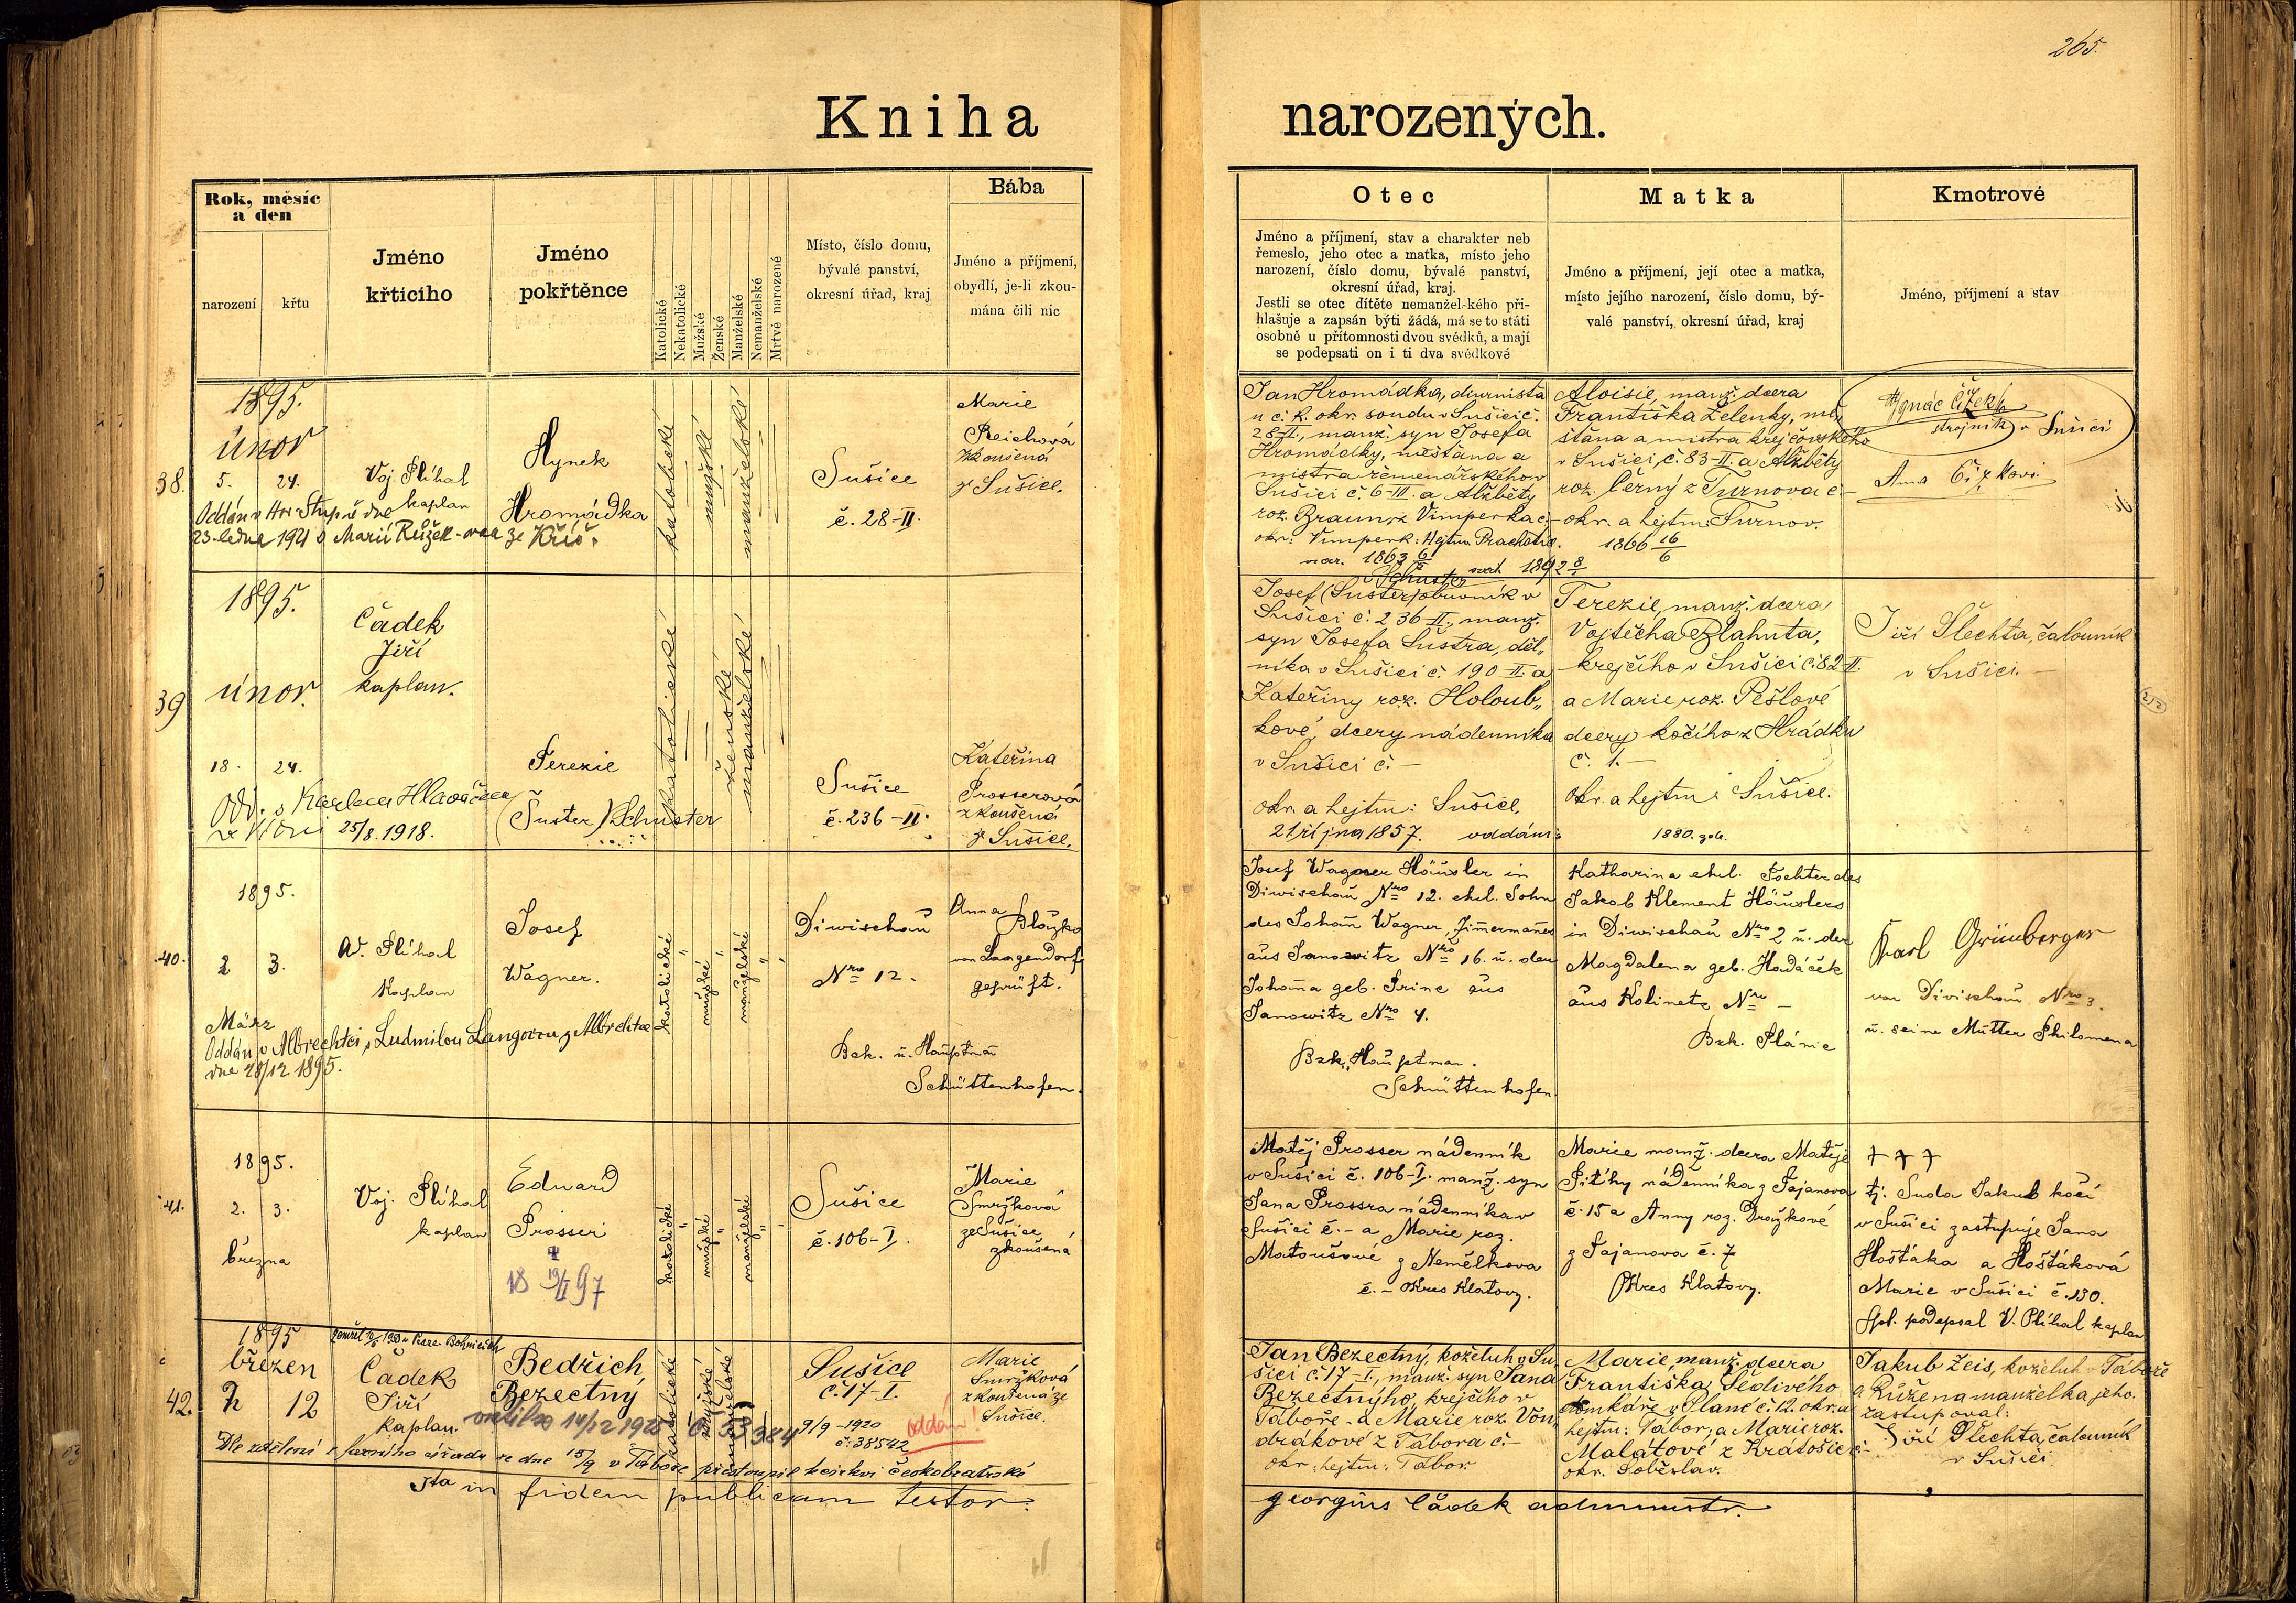 265.
Kniha narozených.
Rok, měsíc a den
narození
křtu
Jméno křtícího
Jméno pokřtěnce
Katolické
Nekatolické
Mužské
Ženské
Manželské
Nemanželské
Mrtvě narozené
Místo, číslo domu,
bývalé panství,
okresní úřad, kraj
Bába
Jméno a příjmení,
obydlí, je-li zkou-
mána čili nic
Otec
Jméno a příjmení, stav a charakter neb
řemeslo, jeho otec a matka, místo jeho
narození, číslo domu, bývalé panství,
okresní úřad, kraj.
Jestli se otec dítěte nemanželského při-
hlašuje a zapsán býti žádá, má se to státi
osobně u přítomnosti dvou svědků, a mají
se podepsati on i ti dva svědkové
Matka
Jméno a příjmení, její otec a matka,
místo jejího narození, číslo domu, bý-
valé panství, okresní úřad, kraj
Kmotrové
Jméno, příjmení a stav
38.
1895.
únor
5. 24.
Voj. Plíhal
kaplan
Hynek
Hromádka
katolické
mužské
manželské
Sušice
č. 28-II.
Marie
Reichová
zkoušená
z Sušice.
Oddán v Hor. Stupě dne
23. ledna 1921 s Marií Růžek-ovou ze Kříž.
Jan Hromádka, diurnista
u c. k. okr. soudu v Sušici č.
28-II., manž. syn Josefa
Hromádky, měšťana a
mistra řemenářského v
Sušici č. 6-III. a Alžběty
roz. Braun z Vimperka č.-
okr: Vimperk: Hejtm. Prachatic.
nar. 1863 6/
Aloisie, manž. dcera
Františka Zelenky, mě-
šťana a mistra krejčovského
v Sušici, č. 83-II. a Alžběty
roz. Černý z Turnova č.-
okr. a hejtm: Turnov.
1866 16/6
1892 8/
Ignác Čížek
strojník v Sušici
Anna Čížková
39
1895.
únor.
18. 24.
Čadek
Jiří
kaplan.
Terezie
(Šuster) Schuster
katolické
ženské
manželské
Sušice
č. 236-II.
Kateřina
Prosserová
zkoušená
z Sušice.
Odd. s Karlem Hlaváčem
25/8. 1918.
Schuster
Josef (Šuster) obuvník v
Sušici č. 236-II., manž.
syn Josefa Šustra, děl-
níka v Sušici č. 190 II. a
Kateřiny roz. Holoub-
kové, dcery nádenníka
v Sušici č. -
okr. a hejtm: Sušice,
21 října 1857. oddáni:
Terezie, manž. dcera
Vojtěcha Blahuta,
krejčího v Sušici č. 82-II.
a Marie roz. Pešlové
dcery kočího z Hrádku
č. 1. -
okr. a hejtm: Sušice.
1880.
Jiří Šlechta, čalouník
v Sušici. -
40.
1895.
2 3.
März
W. Plíhal
Kaplan
Josef
Wagner.
katolické
mužské
manželské
Diwischau
Nro 12.
Bzk. u. Hauptman
Schüttenhofen.
Anna Ploužko
von Langendorf
geprüft.
Oddán v Albrechtci s Ludmilou Langovou z Albrechtce
dne 28/12 1895.
Josef Wagner Häusler in
Diwischau Nro 12. ehel. Sohn
des Johan Wagner, Zimermanes
aus Janowitz Nro 16. u. der
Johana geb. Prine aus
Janowitz Nro 4.
Bzk. Hauptman.
Schüttenhofen.
Katharina ehel. Tochter des
Jakob Klement Häuslers
in Diwischau Nro 2 u. der
Magdalena geb. Hadáček
aus Kolinetz Nro -
Bzk. Plánic
Karl Grünberger
von Divischau Nro 3.
u. seine Mutter Philomena
41.
1895.
2. 3.
března
Voj. Plíhal
kaplan
Eduard
Prosser
18 19/II 97
katolické
mužské
manželské
Sušice
č. 106-I.
Marie
Smržková
ze Sušice
zkoušená
Matěj Prosser nádenník
v Sušici č. 106-I. manž. syn
Jana Prossra nádenníka v
Sušici č. - a Marie roz.
Matoušové z Nemělkova
č. - Okres Klatovy.
Marie manž. dcera Matěje
Pitíky nádenníka z Tajanova
č. 15 a Anny roz. Drozkové
z Tajanova č. 7
Okres Klatovy.
+ + +
tj. Suda Jakub kočí
v Sušici zastupuje Jana
Hošťáka a Hošťáková
Marie v Sušici č. 130.
Spol. podepsal V. Plíhal kaplan
42.
1895
březen
2 12
Čadek
Jiří
kaplan.
Bedřich
Bezectný
katolické
mužské
manželské
Sušice
č. 17-I.
Marie
Smržková
zkoušená ze
Sušice.
9/9 - 1920
č: 38542
oddán!
Dle sdělení úřadu ze dne 15/9 v Táboře přestoupil k církvi českobratrské
Jan Bezectný, koželuh v Su-
šici č. 17-I., manž. syn Jana
Bezectnýho, krejčího v
Táboře - a Marie roz. Von-
drákové z Tábora č.-
okr. hejtm: Tábor.
Marie, manž. dcera
Františka Šedivého
domkáře v Plané č. 12. okr. a
hejtm: Tábor, a Marie roz.
Malátové z Kratošic č.-
okr. Soběslav.
Jakub Zeis, koželuh v Táboře
a Růžena manželka jeho.
zastupoval:
Jiří Šlechta, čalouník
v Sušici.
Ita in fidem publicam testor:
georgius Čadek administr.